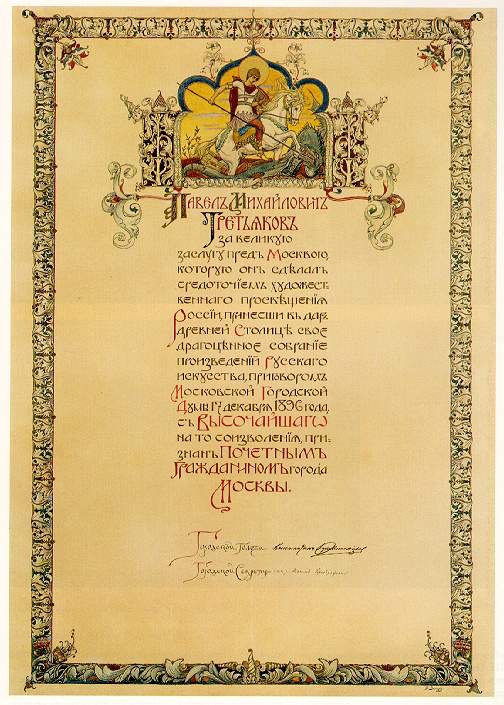 Павелъ Михайловичъ
Третьяковъ
за великую
заслугу предъ Москвою,
которую онъ сдѣлалъ
средоточіемъ художест-
веннаго просвѣщенія
Россіи, принесши въ даръ
древней Столицѣ свое
драгоцѣнное собраніе
произведеній Русскаго
искусства, приговоромъ
Московской Городской
Думы 17 декабря 1896 года,
съ Высочайшаго
на то соизволенія, при-
знанъ Почетнымъ
Гражданиномъ города
Москвы.
Городской Голова
Городской Секретарь